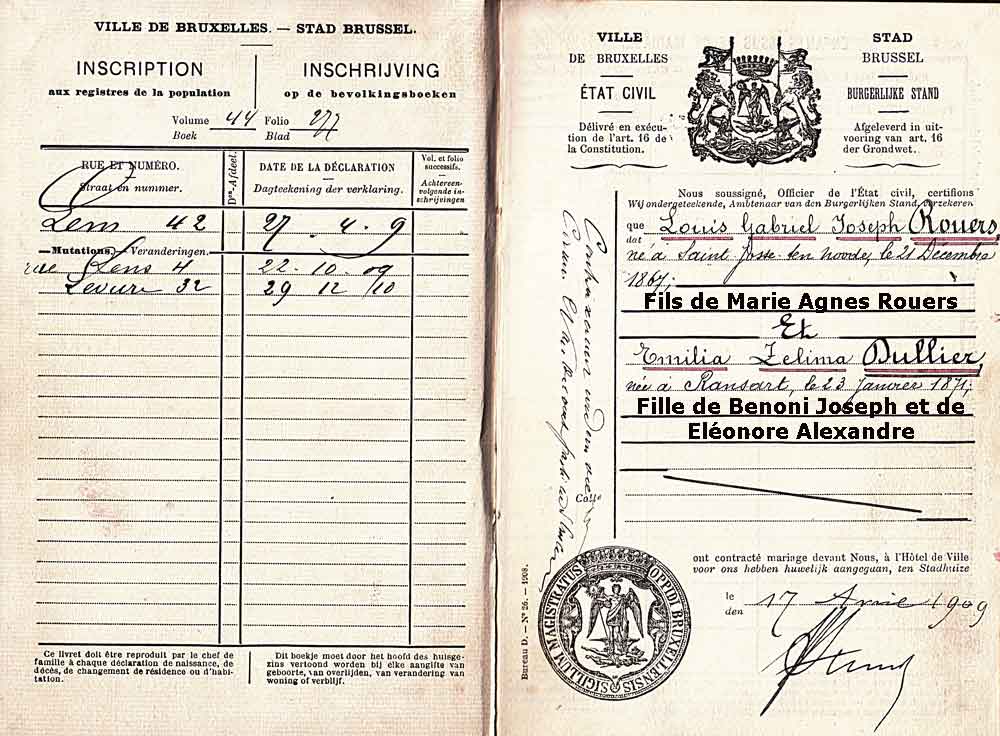 VILLE DE BRUXELLES. — STAD BRUSSEL.
INSCRIPTION
aux registres de la population
INSCHRIJVING
op de bevolkingsboeken
Volume 44 Folio 277
Boek Blad
RUE ET NUMÉRO.
Straat en nummer.
Don-Afdeel.
DATE DE LA DÉCLARATION
Dagteekening der verklaring.
Vol. et folio successifs.
Achtereen-volgende in-schrijvingen
Lens 42 27 . 4 . 9
Mutations. — Veranderingen.
rue Lens 4 22 . 10 . 09
Levure 32 29 12 /10
Ce livret doit être reproduit par le chef de
famille à chaque déclaration de naissance, de
décès, de changement de résidence ou d'habi-
tation.
Dit boekje moet door het hoofd des huisge-
zins vertoond worden bij elke aangifte van
geboorte, van overlijden, van verandering van
woning of verblijf.
VILLE
DE BRUXELLES
ÉTAT CIVIL
Délivré en exécu-
tion de l'art. 16 de
la Constitution.
STAD
BRUSSEL
BURGERLIJKE STAND
Afgeleverd in uit-
voering van art. 16
der Grondwet.
Nous soussigné, Officier de l'État civil, certifions
Wij ondergeteekende, Ambtenaar van den Burgerlijken Stand, verzekeren
que Louis Gabriel Joseph Rouers,
dat
né à Saint Josse-ten-noode, le 21 Décembre
1867;
Fils de Marie Agnes Rouers
Et
Emilia Zelima Dullier,
née à Ransart, le 23 janvier 1871;
Fille de Benoni Joseph et de
Eléonore Alexandre
ont contracté mariage devant Nous, à l'Hôtel de Ville
voor ons hebben huwelijk aangegaan, ten Stadhuize
le 17 Avril 1909
den
Bureau D. — N° 26. — 1908.
SIGILLUM MAGISTRATUS OPPIDI BRUXELLENSIS